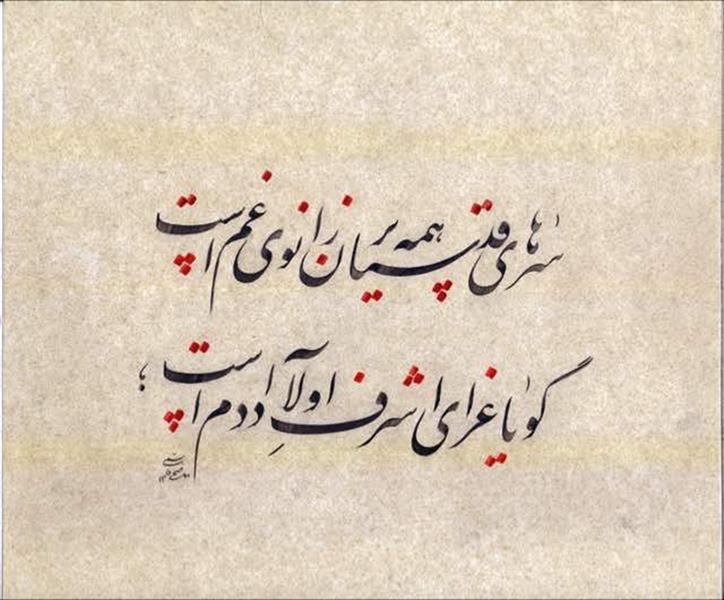 سرهای قدسیان همه بر زانوی غم است
گویا عزای اشرف اولاد آدم است